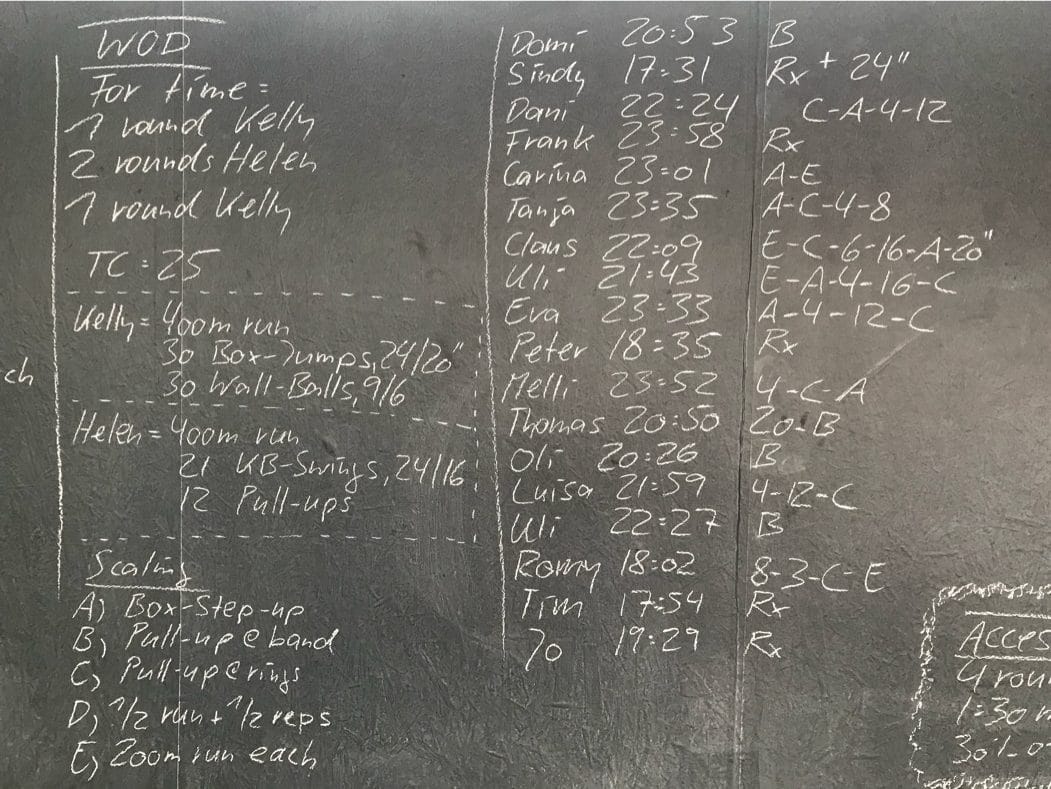 WOD
For time:
1 round Kelly
2 rounds Helen
1 round Kelly
TC: 25
Kelly = 400m run
30 Box-Jumps, 24/20"
30 Wall-Balls, 9/6
Helen = 400m run
21 KB-Swings, 24/16
12 Pull-ups
Scaling
A) Box-Step-up
B) Pull-up @ band
C) Pull-up @ rings
D) 1/2 run + 1/2 reps
E) 200m run each
ch
Domi 20:53 B
Sindy 17:31 Rx + 24"
Dani 22:24 C-A-4-12
Frank 23:58 Rx
Carina 23:01 A-E
Tanja 23:35 A-C-4-8
Claus 22:09 E-C-6-16-A-20"
Uli 21:43 E-A-4-16-C
Eva 23:33 A-4-12-C
Peter 18:35 Rx
Melli 23:52 4-C-A
Thomas 20:50 20-B
Oli 20:26 B
Luisa 21:59 4-12-C
Uli 22:27 B
Ronny 18:02 8-3-C-E
Tim 17:54 Rx
Jo 19:29 Rx
Acces
4 rou
1:30